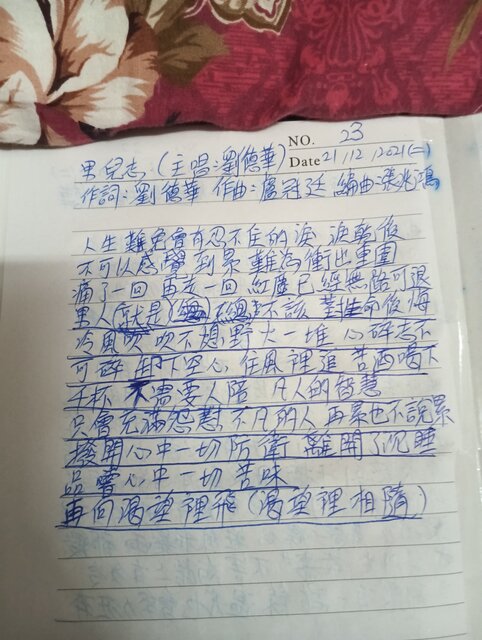 NO. 23
男兒志 (主唱:劉德華) Date 21/12/2021(二)
作詞:劉德華 作曲:盧冠廷 編曲:張兆鴻
人生難免會有忍不住的淚 淚乾後
不可以感聲到累 難為衝出重圍
痛了一回 再走一回 紅塵已經無路可退
男人(就是)(總)不該 對生命後悔
冷風吹 吹不熄野火一堆 心碎志不
可碎 卸下空心 往風裡追 苦酒喝下
千杯 不需要人陪 凡人的智慧
只會充滿怨懟 不凡的人 再累也不說累
撥開心中一切防衛 離開了沉睡
品嚐心中一切苦味
再向渴望裡飛 (渴望裡相隨)